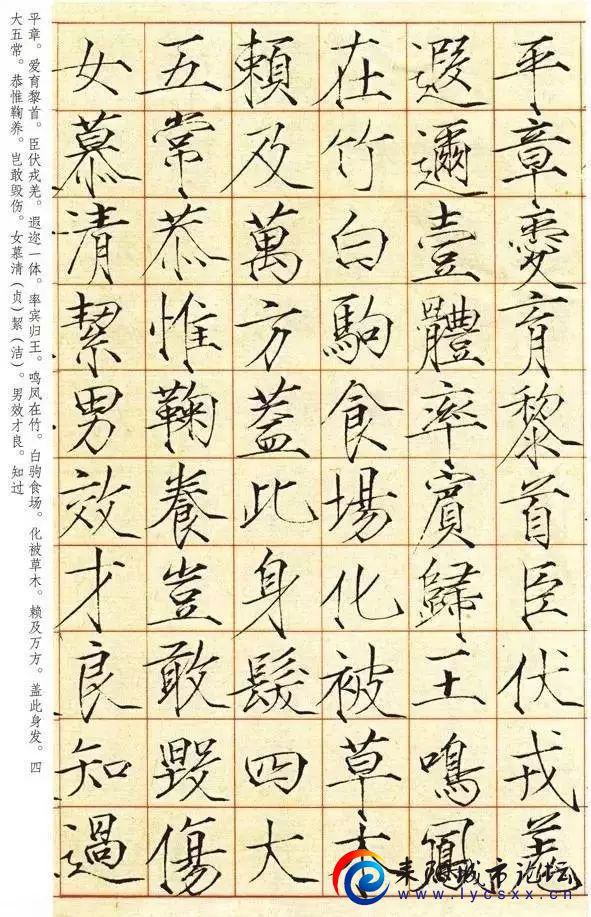 平章愛育黎首臣伏戎羌
遐邇壹體率賓歸王鳴鳳
在竹白駒食場化被草木
賴及萬方蓋此身髮四大
五常恭惟鞠養豈敢毀傷
女慕清絜男效才良知過
平章。爱育黎首。臣伏戎羌。遐迩一体。率宾归王。鸣凤在竹。白驹食场。化被草木。赖及万方。盖此身发。四
大五常。恭惟鞠养。岂敢毁伤。女慕清（贞）絜（洁）。男效才良。知过
耒阳城市论坛
www.lycsxx.cn